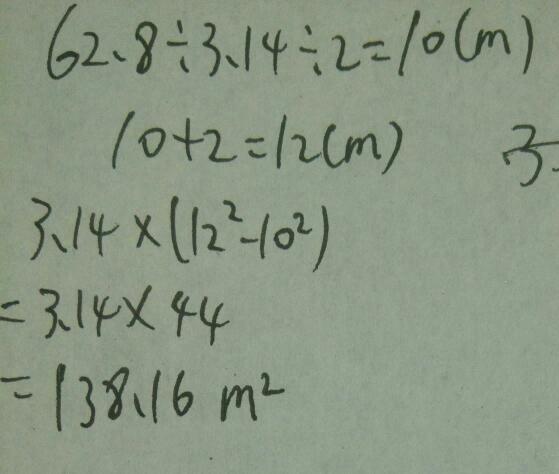 62.8÷3.14÷2=10(m)
10+2=12(m)
3.
3.14×(12²-10²)
=3.14×44
=138.16 m²